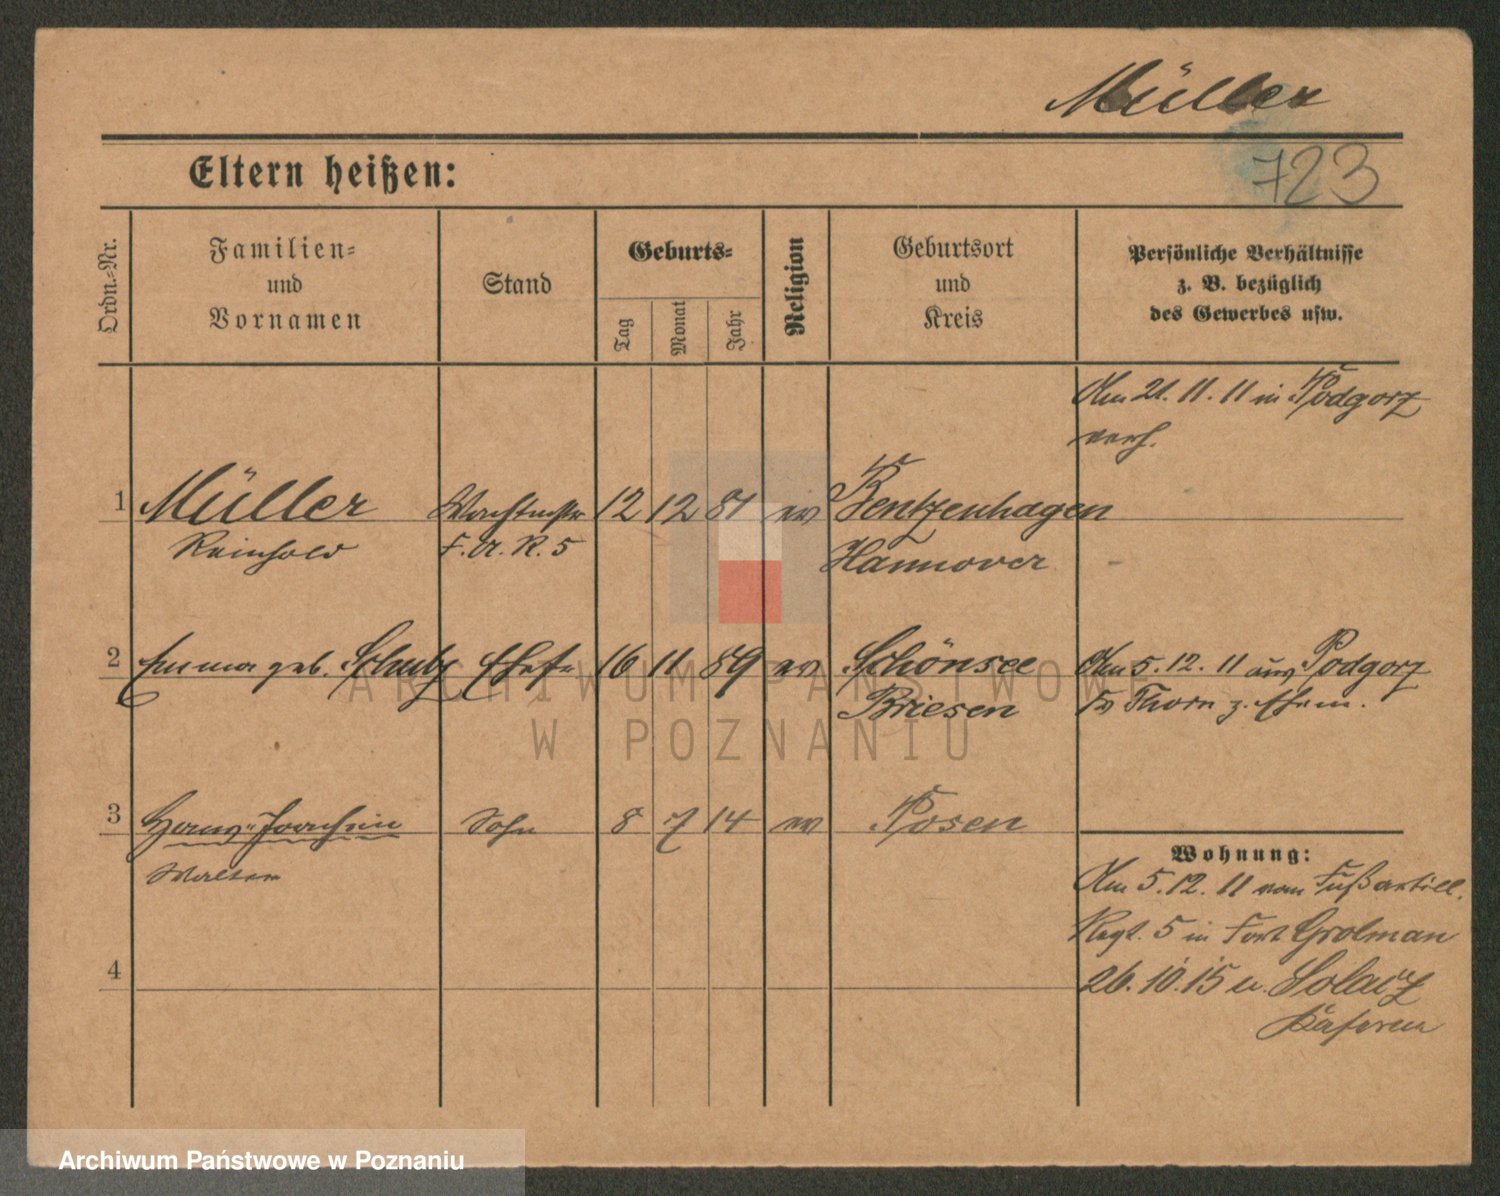 Müller
723
Eltern heißen:
Ordn.-Nr.
Familien-
und
Vornamen
Stand
Geburts-
Tag
Monat
Jahr
Religion
Geburtsort
und
Kreis
Persönliche Verhältnisse
z. B. bezüglich
des Gewerbes usw.
Am 21.11.11 in Podgorz
verh.
1 Müller Wachtmstr 12 12 81 ev Bentzenhagen
Reinhold F. A. R. 5 Hannover
2 Emma geb. Schulz Ehefr. 16 11 89 ev Schönsee Am 5.12.11 aus Podgorz
Briesen Thorn z. Ehem.
3 Hans-Joachim Sohn 8 7 14 ev Posen
Walter
Wohnung:
Am 5.12.11 vom Fußartill.
Regt. 5 in Fort Grolman
4
26.10.15 n. Solacz
Kasernen
ARCHIWUM PAŃSTWOWE
W POZNANIU
Archiwum Państwowe w Poznaniu